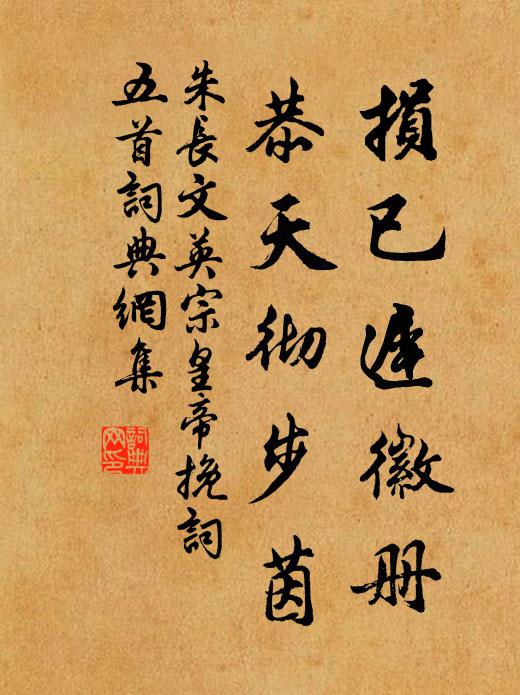 損已遲徽册
恭天彻步茵
朱長文英宗皇帝挽詞
五首詞典網集
詞典
网印